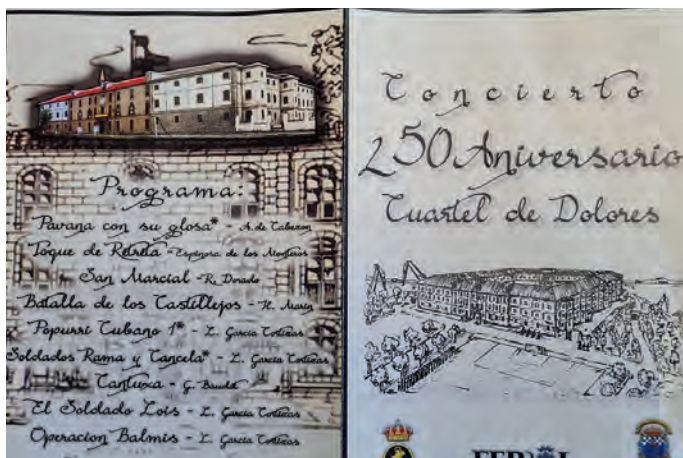 Programa:
Pavana con su glosa* - A. de Cabezon
Toque de Retreta - Espinosa de los Monteros
San Marcial - R. Dorado
Batalla de los Castillejos - H. Marin
Popurri Cubano 1* - L. García Cortizas
Soldados Rama y Cancela* - L. García Cortizas
Cantuxa - G. Baudot
El Soldado Lois - L. García Cortizas
Operacion Balmis - L. García Cortizas
Concierto
250 Aniversario
Cuartel de Dolores
FERROL